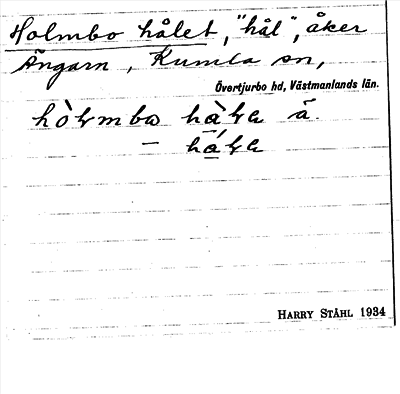 Holmbo hålet, "hål", åker
Ängarn, Kumla sn,
Övertjurbo hd, Västmanlands län.
å.
–
HARRY STÅHL 1934